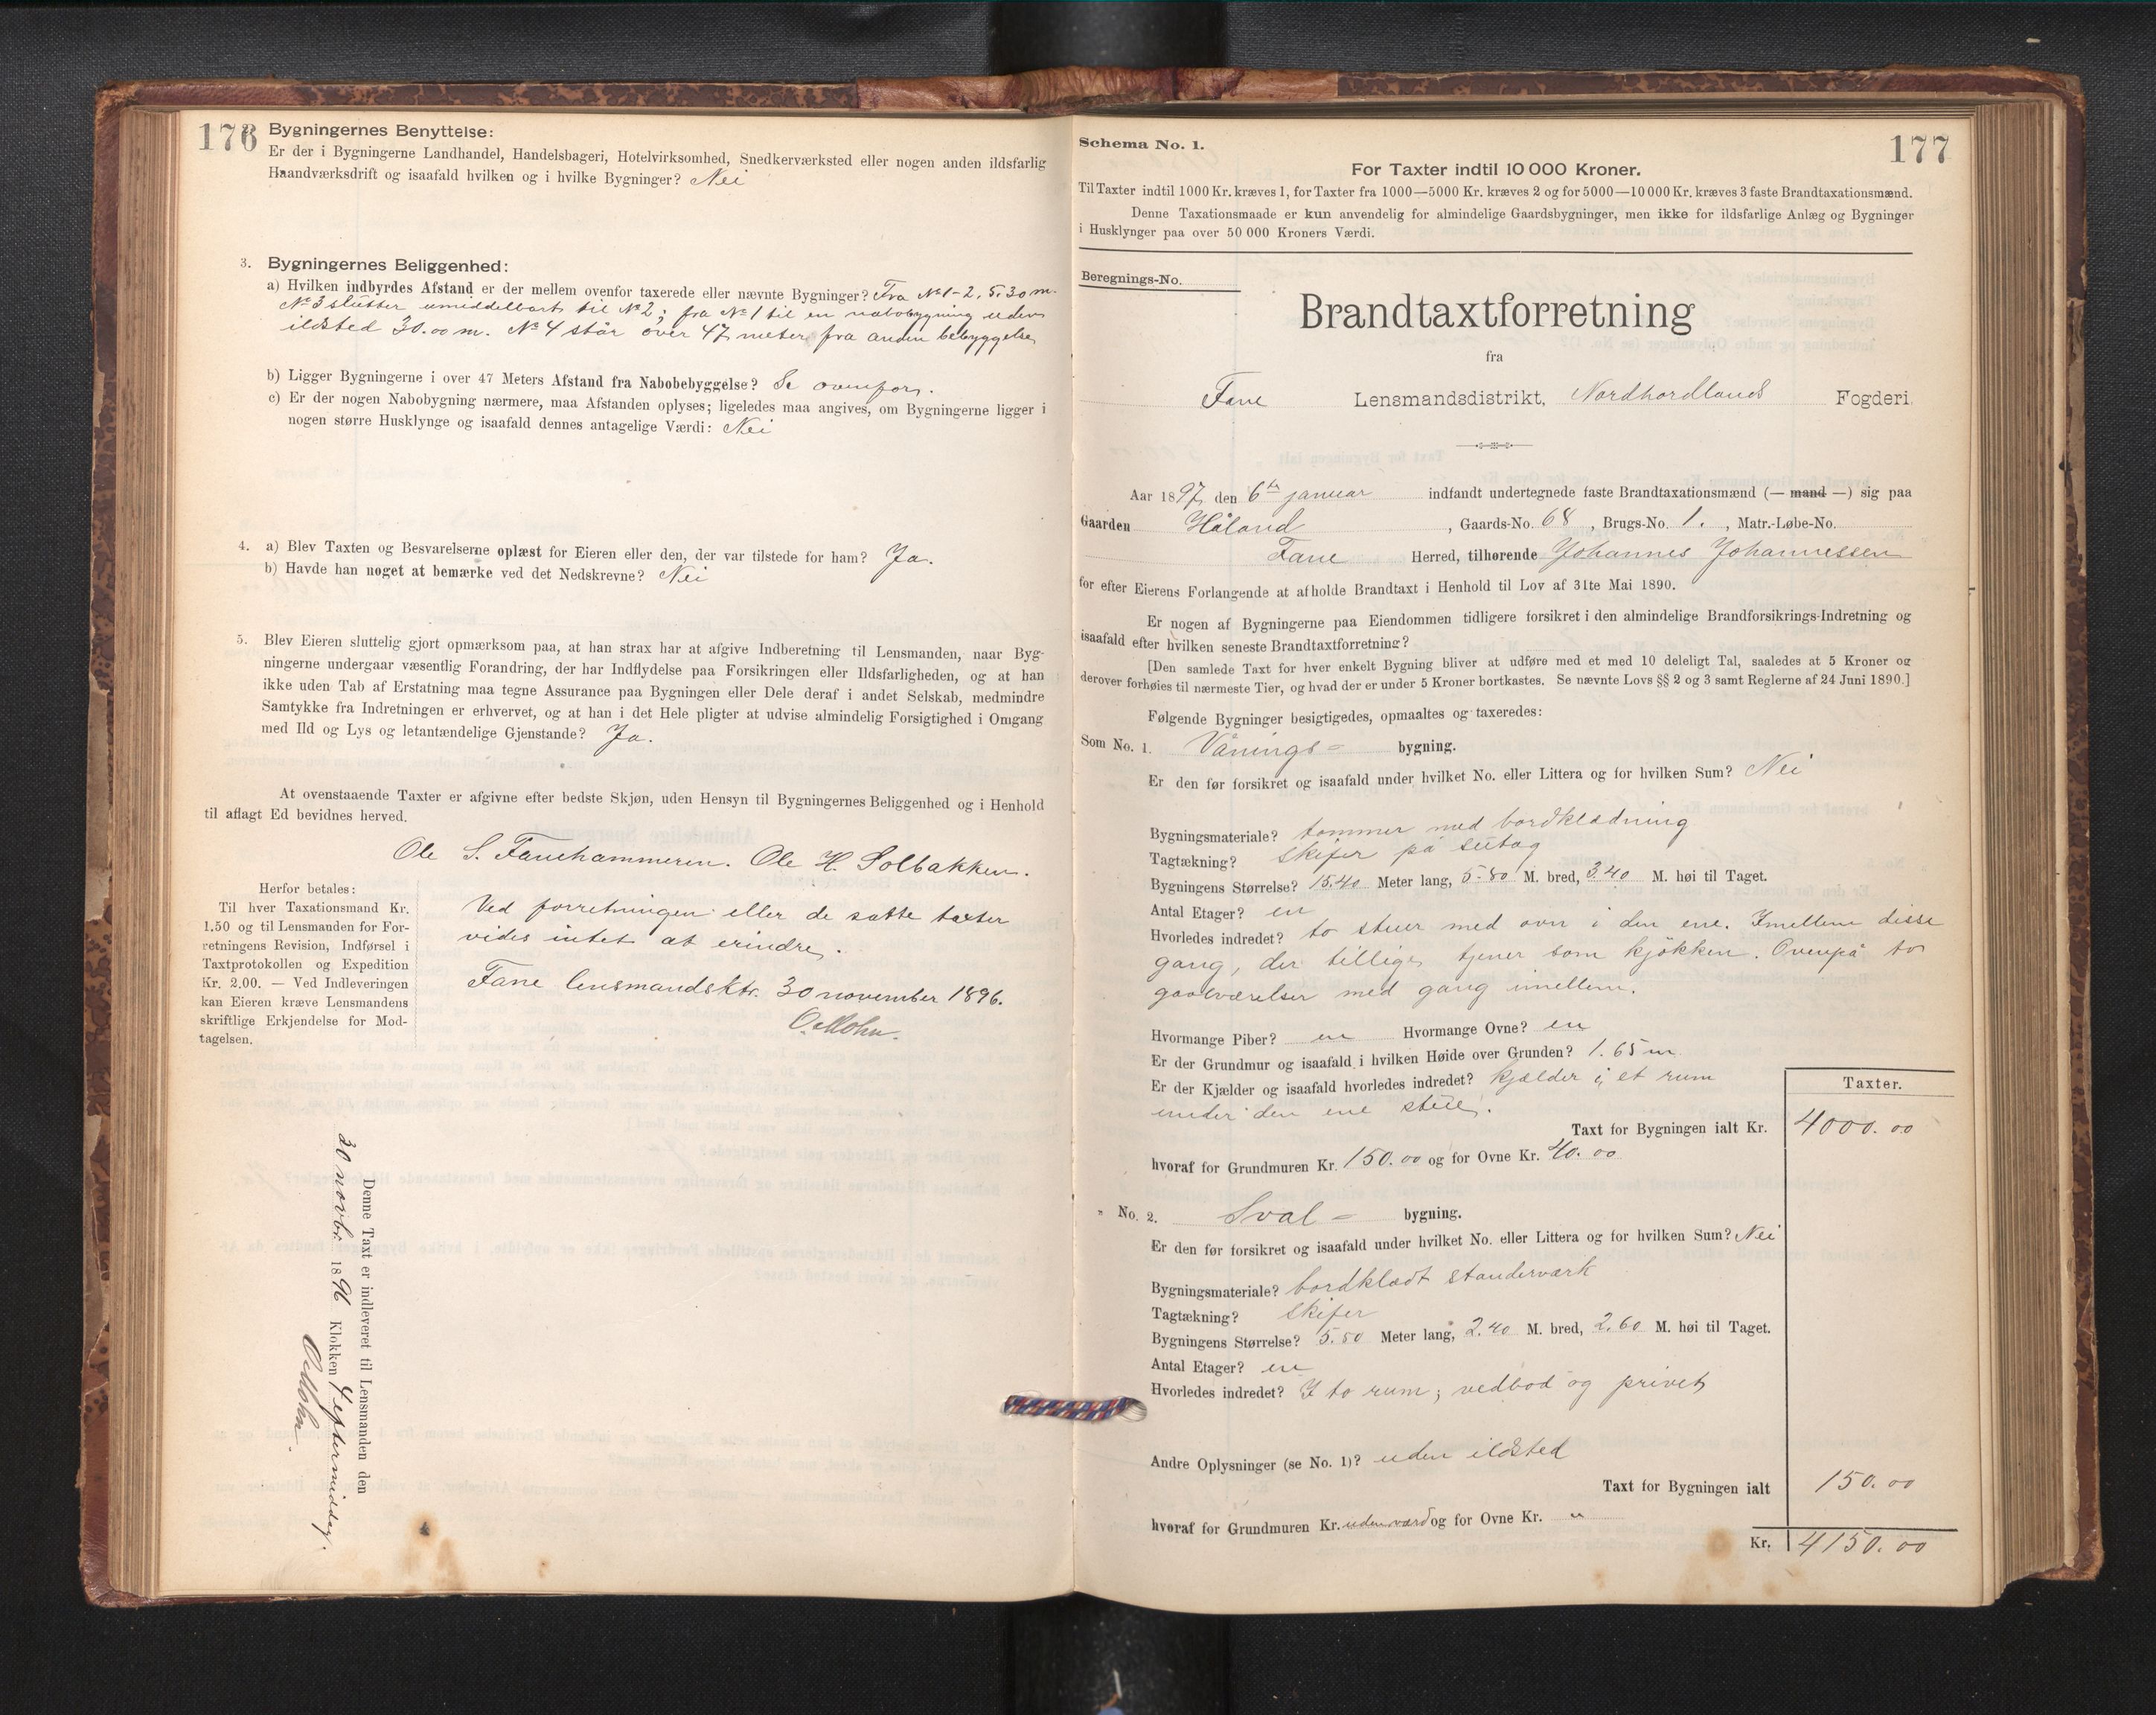 176
Bygningernes Benyttelse:
Er der i Bygningerne Landhandel, Handelsbageri, Hotelvirksomhed, Snedkerværksted eller nogen anden ildsfarlig
Haandværksdrift og isaafald hvilken og i hvilke Bygninger? Nei
3. Bygningernes Beliggenhed:
a) Hvilken indbyrdes Afstand er der mellem ovenfor taxerede eller nævnte Bygninger? Fra No 1-2, 5.30 m.
No 3 slutter umiddelbart til No 2; fra No 1 til en nabobygning uden
ildsted 30.00 m. No 4 står over 47 meter fra anden bebyggelse
b) Ligger Bygningerne i over 47 Meters Afstand fra Nabobebyggelse? Se ovenfor.
c) Er der nogen Nabobygning nærmere, maa Afstanden oplyses; ligeledes maa angives, om Bygningerne ligger i
nogen større Husklynge og isaafald dennes antagelige Værdi: Nei
4. a) Blev Taxten og Besvarelserne oplæst for Eieren eller den, der var tilstede for ham? Ja.
b) Havde han noget at bemærke ved det Nedskrevne? Nei
5. Blev Eieren sluttelig gjort opmærksom paa, at han strax har at afgive Indberetning til Lensmanden, naar Byg-
ningerne undergaar væsentlig Forandring, der har Indflydelse paa Forsikringen eller Ildsfarligheden, og at han
ikke uden Tab af Erstatning maa tegne Assurance paa Bygningen eller Dele deraf i andet Selskab, medmindre
Samtykke fra Indretningen er erhvervet, og at han i det Hele pligter at udvise almindelig Forsigtighed i Omgang
med Ild og Lys og letantændelige Gjenstande? Ja.
At ovenstaaende Taxter er afgivne efter bedste Skjøn, uden Hensyn til Bygningernes Beliggenhed og i Henhold
til aflagt Ed bevidnes herved.
Ole S. Fanehammeren. Ole H. Solbakken.
Herfor betales:
Til hver Taxationsmand Kr.
1.50 og til Lensmanden for For-
retningens Revision, Indførsel i
Taxtprotokollen og Expedition
Kr. 2.00. — Ved Indleveringen
kan Eieren kræve Lensmandens
skriftlige Erkjendelse for Mod-
tagelsen.
Ved forretningen eller de satte taxter
vides intet at erindre.
Fane lensmandsktr. 30 november 1896.
O. Mohn.
Denne Taxt er indleveret til Lensmanden den
30 novbr. 1896 Klokken 4 eftermiddag.
O. Mohn.
Schema No. 1.
177
For Taxter indtil 10 000 Kroner.
Til Taxter indtil 1000 Kr. kræves 1, for Taxter fra 1000—5000 Kr. kræves 2 og for 5000—10 000 Kr. kræves 3 faste Brandtaxationsmænd.
Denne Taxationsmaade er kun anvendelig for almindelige Gaardsbygninger, men ikke for ildsfarlige Anlæg og Bygninger
i Husklynger paa over 50 000 Kroners Værdi.
Beregnings-No.
Brandtaxtforretning
fra
Fane Lensmandsdistrikt, Nordhordlands Fogderi.
Aar 1897, den 6te januar indfandt undertegnede faste Brandtaxationsmænd (— mand —) sig paa
Gaarden Håland, Gaards-No. 68, Brugs-No. 1., Matr.-Løbe-No.
Fane Herred, tilhørende Johannes Johannessen
for efter Eierens Forlangende at afholde Brandtaxt i Henhold til Lov af 31te Mai 1890.
Er nogen af Bygningerne paa Eiendommen tidligere forsikret i den almindelige Brandforsikrings-Indretning og
isaafald efter hvilken seneste Brandtaxtforretning?
[Den samlede Taxt for hver enkelt Bygning bliver at udføre med et med 10 deleligt Tal, saaledes at 5 Kroner og
derover forhøies til nærmeste Tier, og hvad der er under 5 Kroner bortkastes. Se nævnte Lovs §§ 2 og 3 samt Reglerne af 24 Juni 1890.]
Følgende Bygninger besigtigedes, opmaaltes og taxeredes:
Som No. 1. Vånings- bygning.
Er den før forsikret og isaafald under hvilket No. eller Littera og for hvilken Sum? Nei
Bygningsmateriale? tømmer med bordklædning
Tagtækning? skifer på sutag
Bygningens Størrelse? 15.40 Meter lang, 5.80 M. bred, 3.40 M. høi til Taget.
Antal Etager? en
Hvorledes indredet? to stuer med ovn i den ene. Imellem disse
gang, der tillige tjener som kjøkken. Ovenpå to
gavlværelser med gang imellem.
Hvormange Piber? en Hvormange Ovne? en
Er der Grundmur og isaafald i hvilken Høide over Grunden? 1.65 m
Er der Kjælder og isaafald hvorledes indredet? kjælder i et rum
under den ene stue.
Taxter.
Taxt for Bygningen ialt Kr. 4000.00
hvoraf for Grundmuren Kr. 150.00 og for Ovne Kr. 40.00
" No. 2. Sval- bygning.
Er den før forsikret og isaafald under hvilket No. eller Littera og for hvilken Sum? Nei
Bygningsmateriale? bordklædt standerværk
Tagtækning? skifer
Bygningens Størrelse? 5.80 Meter lang, 2.40 M. bred, 2.60 M. høi til Taget.
Antal Etager? en
Hvorledes indredet? I to rum; vedbod og privet
Andre Oplysninger (se No. 1)? uden ildsted
Taxt for Bygningen ialt 150.00
hvoraf for Grundmuren Kr. uden værd og for Ovne Kr. "
Kr. 4150.00